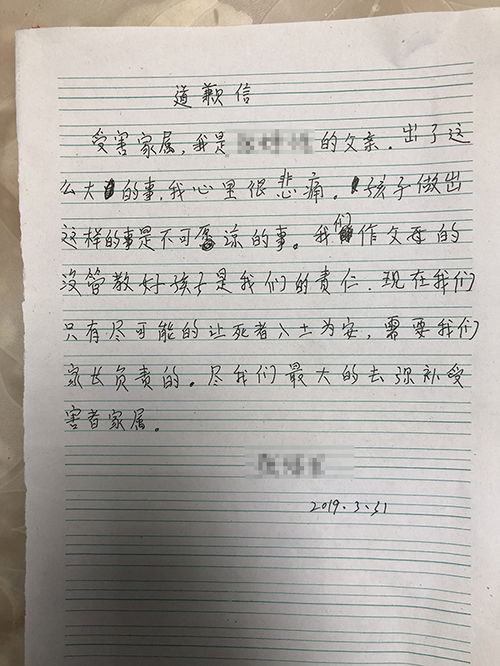 道歉信
受害家属,我是的父亲.出了这
么大的事,我心里很悲痛.孩子做出
这样的事是不可原谅的事。我们作父母的
没管教好孩子是我们的责任.现在我们
只有尽可能的让死者入土为安,需要我们
家长负责的。尽我们最大的去弥补受
害者家属。
2019.3.31